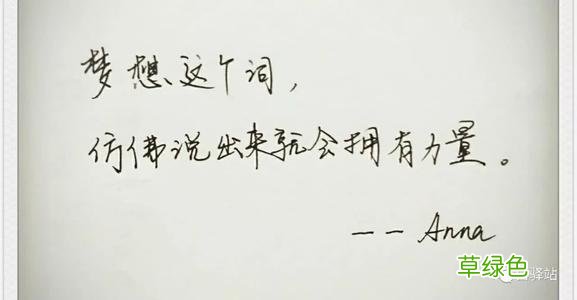 梦想这个词，
仿佛说出来就会拥有力量。
—— Anna
草绿色
驿站